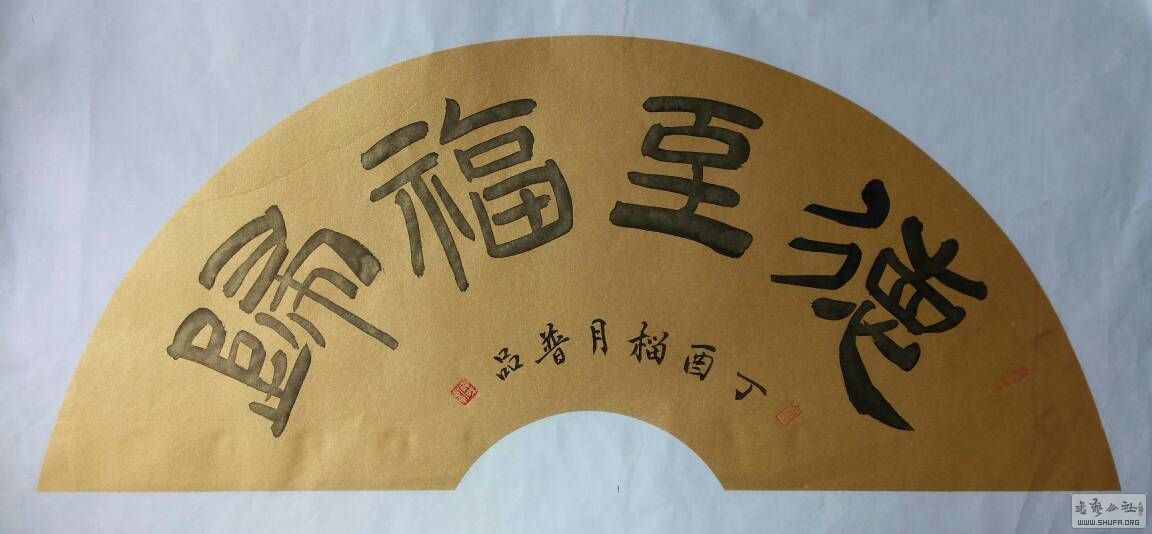 德至福歸
丁酉榴月普品
書藝公社
WWW.SHUFA.ORG